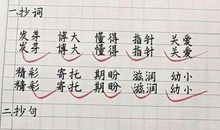 一.抄词
发芽 博大 懂得 指针 关爱
发芽 博大 懂得 指针 关爱
精彩 寄托 期盼 滋润 幼小
精彩 寄托 期盼 滋润 幼小
二.抄句